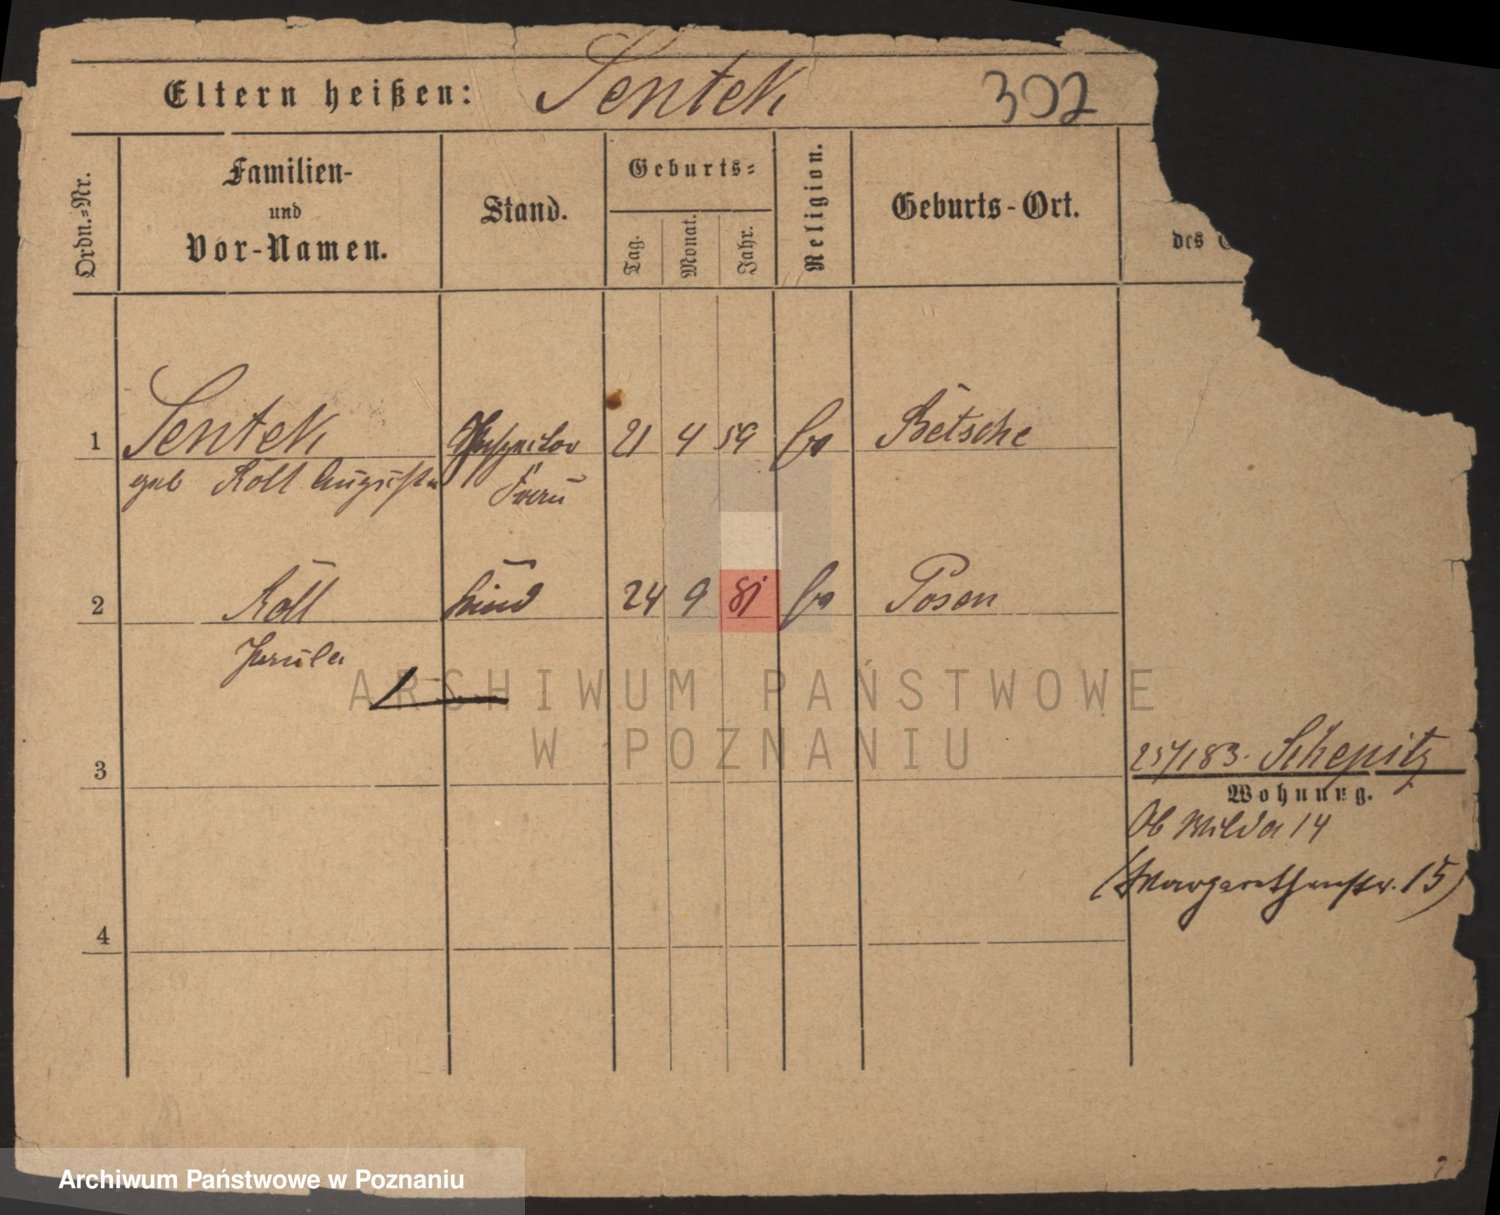 Eltern heißen: Sentek 302
Ordn.-Nr.
Familien-
und
Vor-Namen.
Stand.
Geburts-
Tag.
Monat.
Jahr.
Religion.
Geburts-Ort.
des
1 Sentek 21 4 59 Betsche
geb Röll Auguste Frau
2 Röll Kind 24 9 81 Posen
ARCHIWUM PAŃSTWOWE
W POZNANIU
3
25/1 83. Schepitz
Wohnung.
Ob Wilda 14
(Margarethenstr. 15)
4
Archiwum Państwowe w Poznaniu